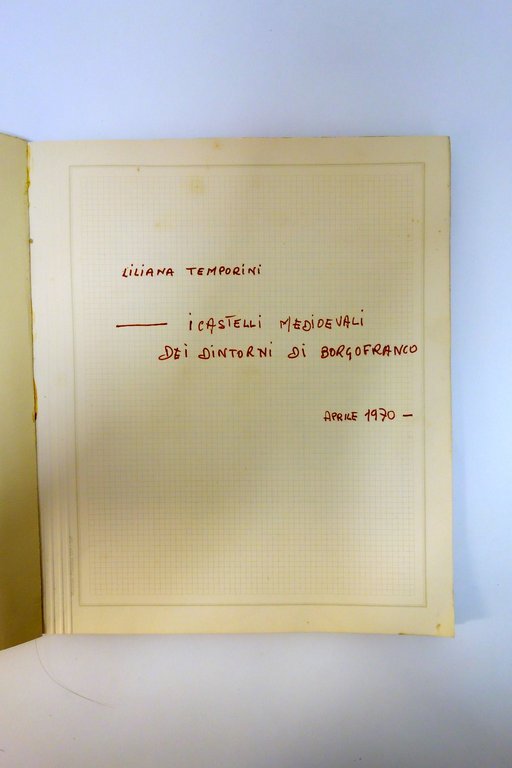 LILIANA TEMPORINI
— I CASTELLI MEDIOEVALI
DEI DINTORNI DI BORGOFRANCO
APRILE 1970 —